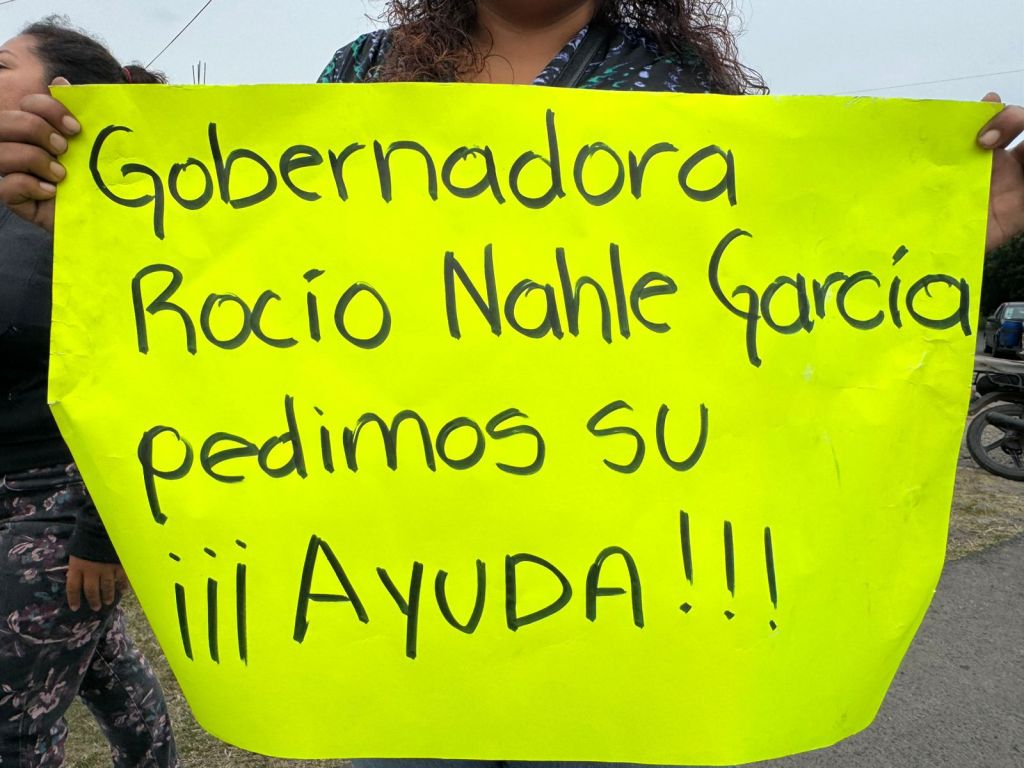 Gobernadora
Rocio Nahle García
pedimos su
¡¡¡AYUDA!!!